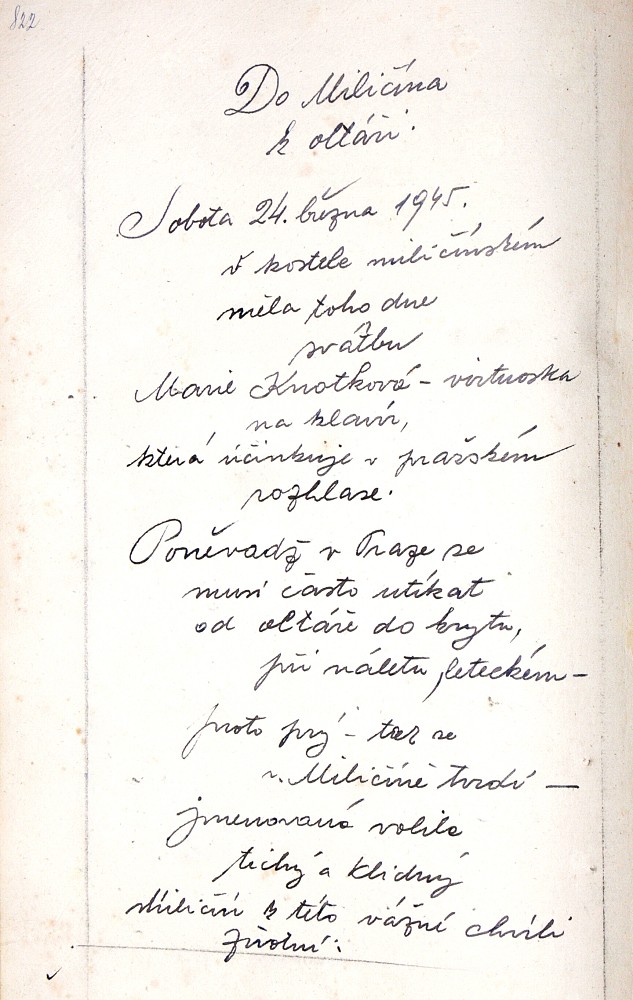 822
Do Miličína
k oltáři.
Sobota 24. března 1945.
v kostele miličínském
měla toho dne
svátbu
Marie Knotková - virtuoska
na klavír,
která účinkuje v pražském
rozhlase.
Poněvadž v Praze se
musí často utíkat
od oltáře do krytu,
při náletu leteckém -
proto prý - tak se
v Miličíně tvrdí -
jmenovaná volila
tichý a klidný
Miličín k této vážné chvíli
životní.